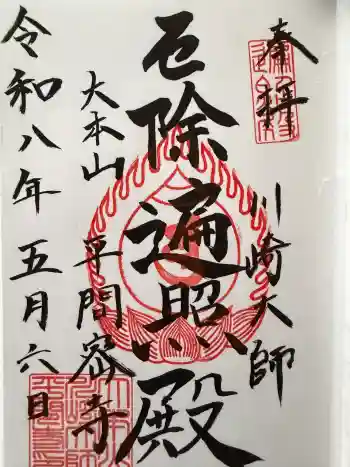 奉拝
川崎大師
厄除遍照殿
大本山 平間密寺
令和八年五月六日